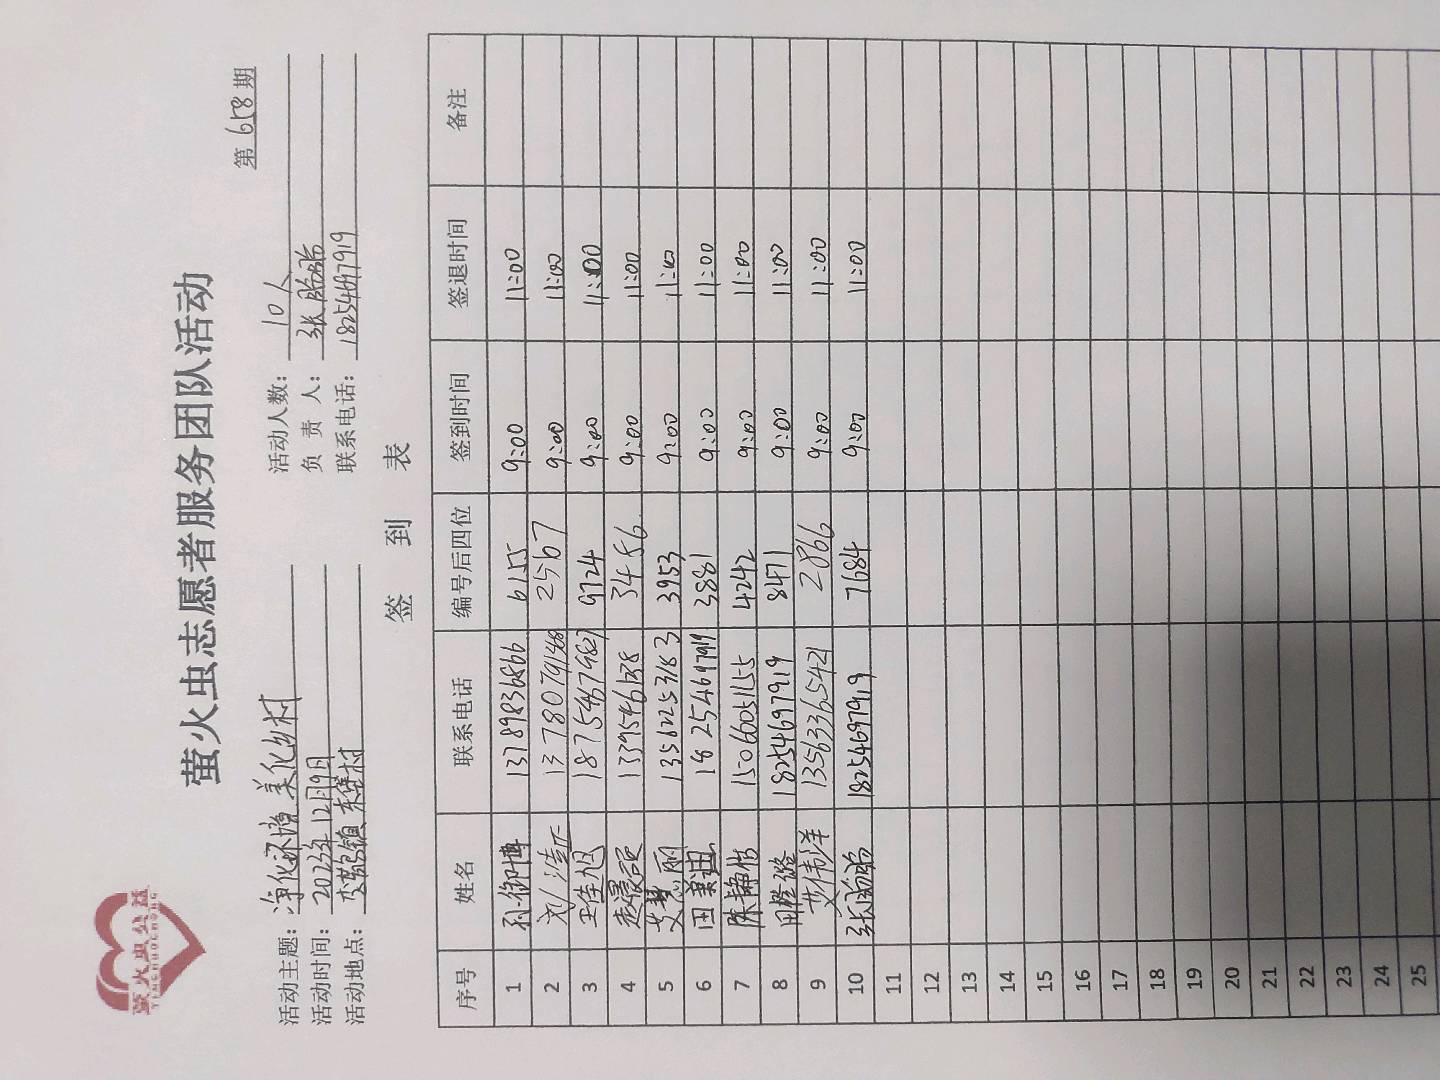 萤火虫公益
YINGHUOCHONG
萤火虫志愿者服务团队活动
第 658 期
活动主题: 净化环境 美化乡村 活动人数: 10人
活动时间: 2023年12月9日 负 责 人: 张
活动地点: 镇 村 联系电话: 18254697919
签 到 表
序号 姓名 联系电话 编号后四位 签到时间 签退时间 备注
1 孙御博 13789836866 6155 9:00 11:00
2 刘浩 13780791486 2567 9:00 11:00
3 王佳旭 18754679827 9724 9:00 11:00
4 13395461378 3456 9:00 11:00
5 艾慧丽 13562253183 3953 9:00 11:00
6 田 18254697919 3881 9:00 11:00
7 陈静怡 15066051155 4242 9:00 11:00
8 田橙璐 18254697919 8471 9:00 11:00
9 艾伟洋 13563365421 2866 9:00 11:00
10 张 18254697919 7684 9:00 11:00
11
12
13
14
15
16
17
18
19
20
21
22
23
24
25